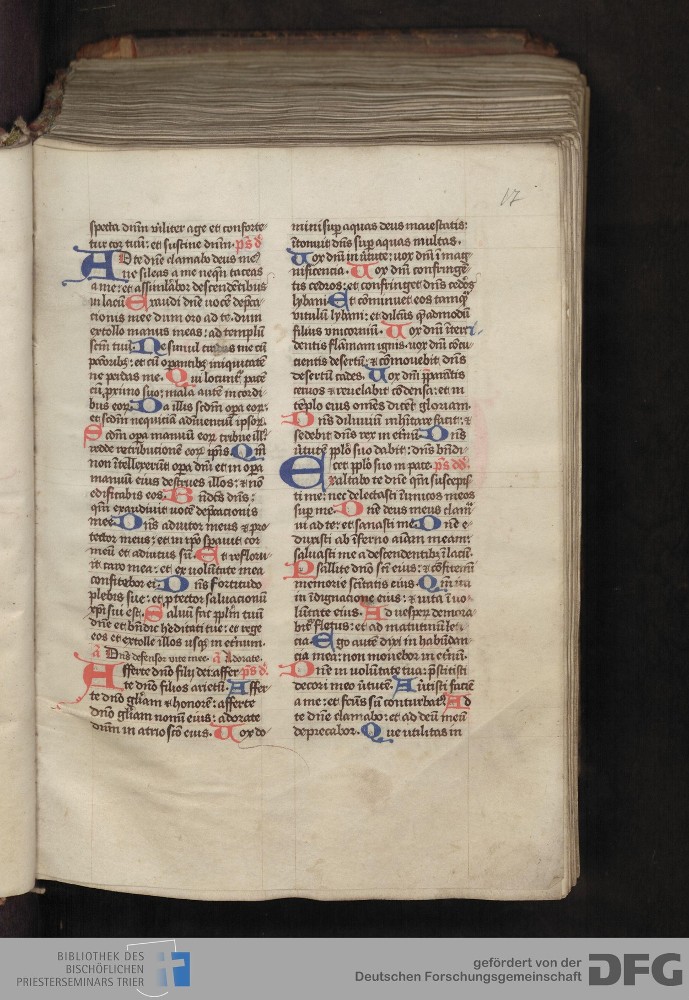 17
specta dnm viriliter age et conforte-
tur cor tuū: et sustine dnm. ps d
AD te dne clamabo deus me
ne sileas a me neqn taceas
a me: et assimilabor descendētibus
in lacū Exaudi dne vocē depca-
cionis mee dum oro ad te. dum
extollo manus meas: ad templū
scm tuū. Ne simul me cū
pccōribus: et cū opantibus iniquitatē
ne perdas me. Qui locunt pacē
cū, proximo suo: mala autē in cordi
bus eor Da illis scdm opa eor:
et scdm nequiciā adinuentū ipsor.
Scdm opa manuū eor tribue ill:
redde retribucionē eor ipsis. Qm
non ītellexerūt opa dni et in opa
manuū eius destrues illos: et nō
edificabis eos. Bndcs dns:
qm exaudiuit vocē depcacionis
mee Dns adiutor meus et pro
tector meus: et in ipo sperauit cor
meū et adiutus sū Et reflorui
it caro mea: et ex volūtate mea
confitebor ei Dns fortitudo
plebis sue: et ptector saluacionū
xpi sui est. Saluū fac pplm tuū
dne et bndic heditati tue: et rege
eos et extolle illos usq in etnum.
a Dns defensor vite mee. a Adorate.
Afferte dno filij dei affer ps d.
te dno filios arietū. Affer
te dno gliam et honorē: afferte
dno gliam nomī eius: adorate
dnm in atrio scō eius. Uox do-
mini sup aquas deus maiestatis:
ītonuit dns sup aquas multas.
Uox dni ī ūtute: uox dni ī mag
nificencia. Uox dni confringē-
tis cedros: et confringet dns cedos
lybani Et cōminuet eos tamq
vitulū lybani: et dilcūs qēadmodū
filius vnicornū. Uox dni ītert
dentis flāmam ignis. uox dni cōcu
cientis desertū: et cōmouebit dns
desertū cades. Uox dni pparātis
ceruos et reuelabit cōdensa: et in
tēplo eius omēs dicēt gloriam.
Dns diluuiū inhītare facit: et
sedebit dns rex in etnū Dns
ūtutē pplo suo dabit: dns bndi-
cet pplo suo in pace. ps dd.
Exaltabo te dne qm suscepis
ti me: nec delectasti īimicos meos
sup me. Dne deus meus clam
ui ad te: et sanasti me Dne e
duxisti ab īferno aīam meam:
saluasti me a descendentibus ī lacū.
Psallite dno sci eius: et cōfitemī
memorie scitatis eius. Qm ira
in īdignacione eius: et uita ī uo
lūtate eius. Ad vesperū demora
bit fletus: et ad matutinū leti-
cia. Ego autē dixi in habūdan
cia mea: non mouebor in etnū.
Dne in volūtate tua: pstitisti
decori meo ūtutē. Auertisti faciē
a me: et fcūs sū conturbat Ad
te dne clamabo: et ad deū meū
deprecabor. Que utilitas in
BIBLIOTHEK DES
BISCHÖFLICHEN
PRIESTERSEMINARS TRIER
gefördert von der
Deutschen Forschungsgemeinschaft
DFG